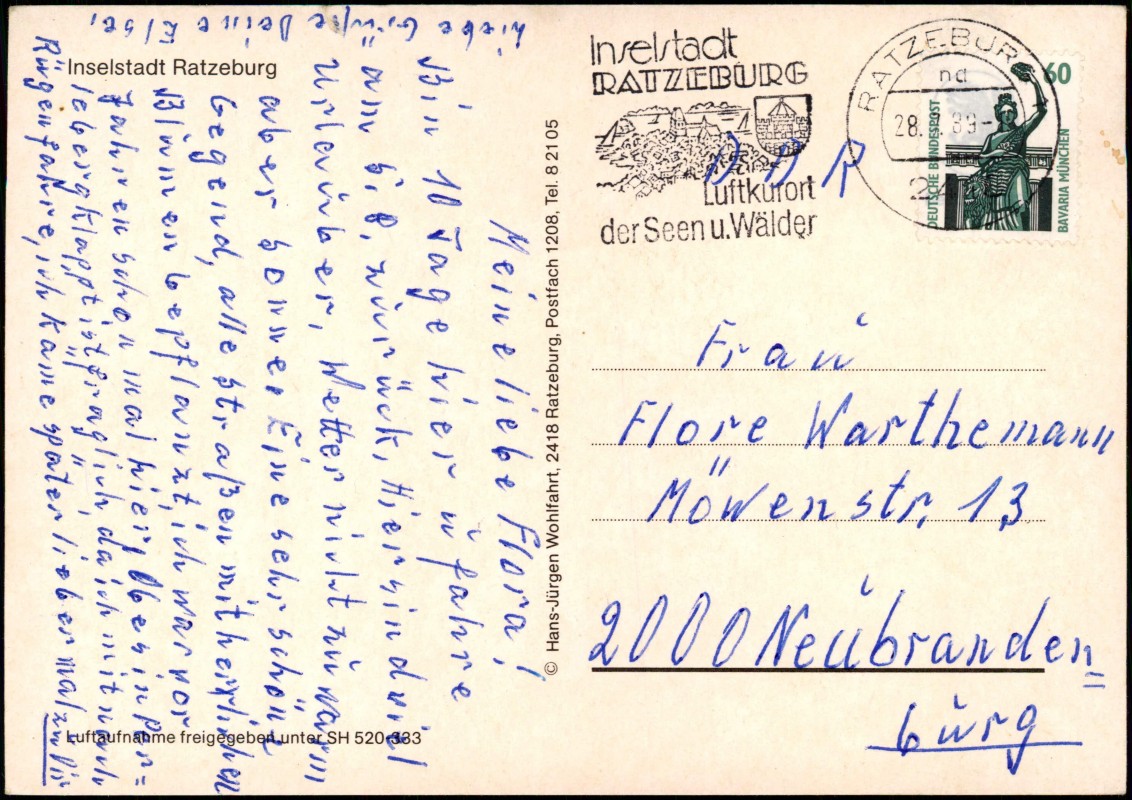 Inselstadt Ratzeburg
Meine liebe Flora!
Bin 10 Tage hier u fahre
am 6.8. zurück. Hier sind viel
Urlauber, Wetter nicht zu warm
aber Sonne. Eine sehr schöne
Gegend, alle Straßen mit herrlichen
Blumen bepflanzt, ich war vor
Jahren schon mal hier, Ob es in Per=
leberg klappt ist fraglich, da ich mit nach
Rügen fahre, ich käme später lieber mal zu Dir
Liebe Grüße Deine Else,
Luftaufnahme freigegeben unter SH 520-333
© Hans-Jürgen Wohlfahrt, 2418 Ratzeburg, Postfach 1208, Tel. 8 21 05
Inselstadt
RATZEBURG
Luftkurort
der Seen u. Wälder
RATZEBURG
na
28. 89-
24
60
DEUTSCHE BUNDESPOST
BAVARIA MÜNCHEN
DDR
Frau
Flore Warthemann
Möwenstr. 13
2000 Neubranden
burg